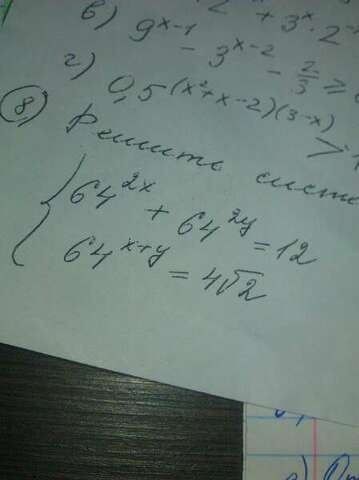 в) 9^(x-1) - 3^(x-2) - 2/3 ≥
г) 0,5^((x²+x-2)(3-x)) >
8) Решить
64^(2x) + 64^(2y) = 12
64^(x+y) = 4√2